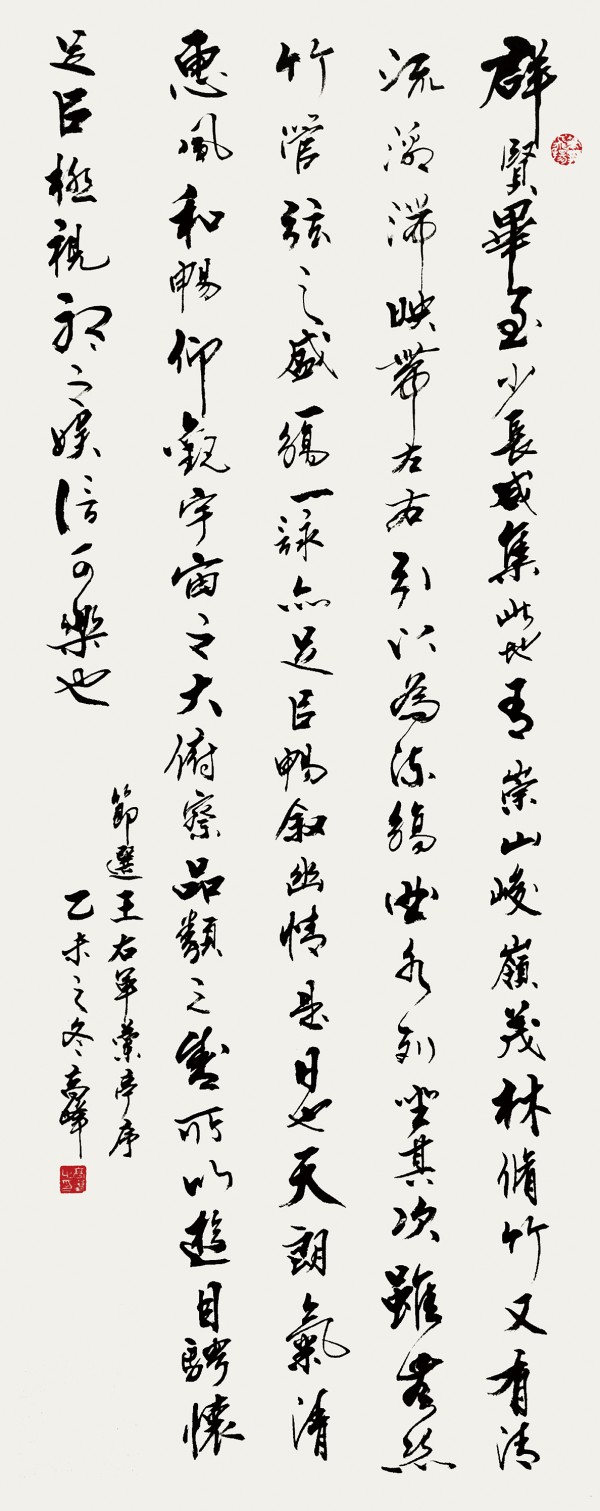 群賢畢至少長咸集此地有崇山峻嶺茂林脩竹又有清
流激湍映帶左右引以為流觴曲水列坐其次雖無絲
竹管弦之盛一觴一詠亦足以暢叙幽情是日也天朗氣清
惠風和暢仰觀宇宙之大俯察品類之盛所以遊目騁懷
足以極視聽之娛信可樂也
節選王右軍蘭亭序
乙未之冬高峰